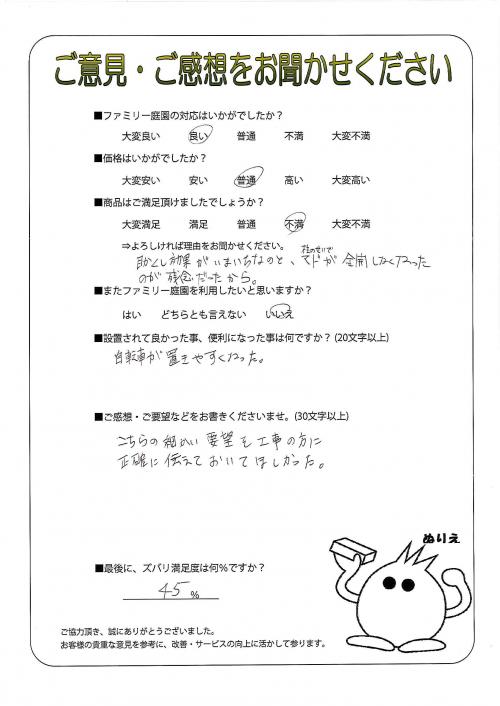 ご意見・ご感想をお聞かせください
■ファミリー庭園の対応はいかがでしたか？
大変良い 良い 普通 不満 大変不満
■価格はいかがでしたか？
大変安い 安い 普通 高い 大変高い
■商品はご満足頂けましたでしょうか？
大変満足 満足 普通 不満 大変不満
⇒よろしければ理由をお聞かせください。
柱のせいで
効果がいまいちなのと、が全開しなくなった
のが残念だったから。
■またファミリー庭園を利用したいと思いますか？
はい どちらとも言えない いいえ
■設置されて良かった事、便利になった事は何ですか？(20文字以上)
自転車が置きやすくなった。
■ご感想・ご要望などをお書きくださいませ。(30文字以上)
こちらの細かい要望を工事の方に
正確に伝えておいてほしかった。
ぬりえ
■最後に、ズバリ満足度は何％ですか？
45 %
ご協力頂き、誠にありがとうございました。
お客様の貴重な意見を参考に、改善・サービスの向上に活かして参ります。